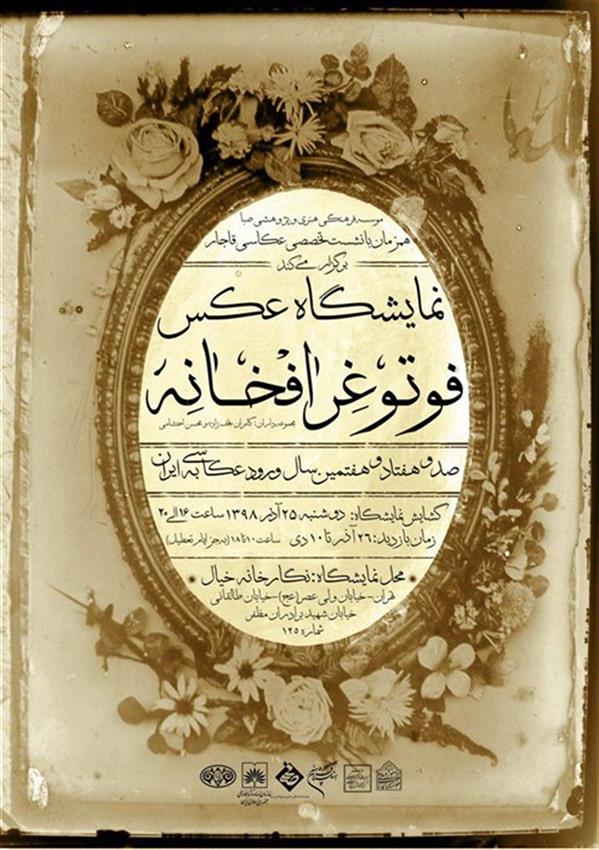 موسسه فرهنگی هنری و پژوهشی صبا
همزمان با نشست تخصصی عکاسی قاجار
برگزار می‌کند
نمایشگاه عکس
فوتوغرافخانه
مجموعه‌داران: کامران نجف‌زاده و محسن احتشامی
صد و هفتاد و هفتمین سال ورود عکاسی به ایران
گشایش نمایشگاه: دوشنبه ۲۵ آذر ۱۳۹۸ ساعت ۱۶ الی ۲۰
زمان بازدید: ۲۶ آذر تا ۱۰ دی ساعت ۱۰ تا ۱۸ (به‌جز ایام تعطیل)
محل نمایشگاه: نگارخانه خیال
تهران - خیابان ولی عصر (عج) - خیابان طالقانی
خیابان شهید برادران مظفر
شماره ۱۲۵